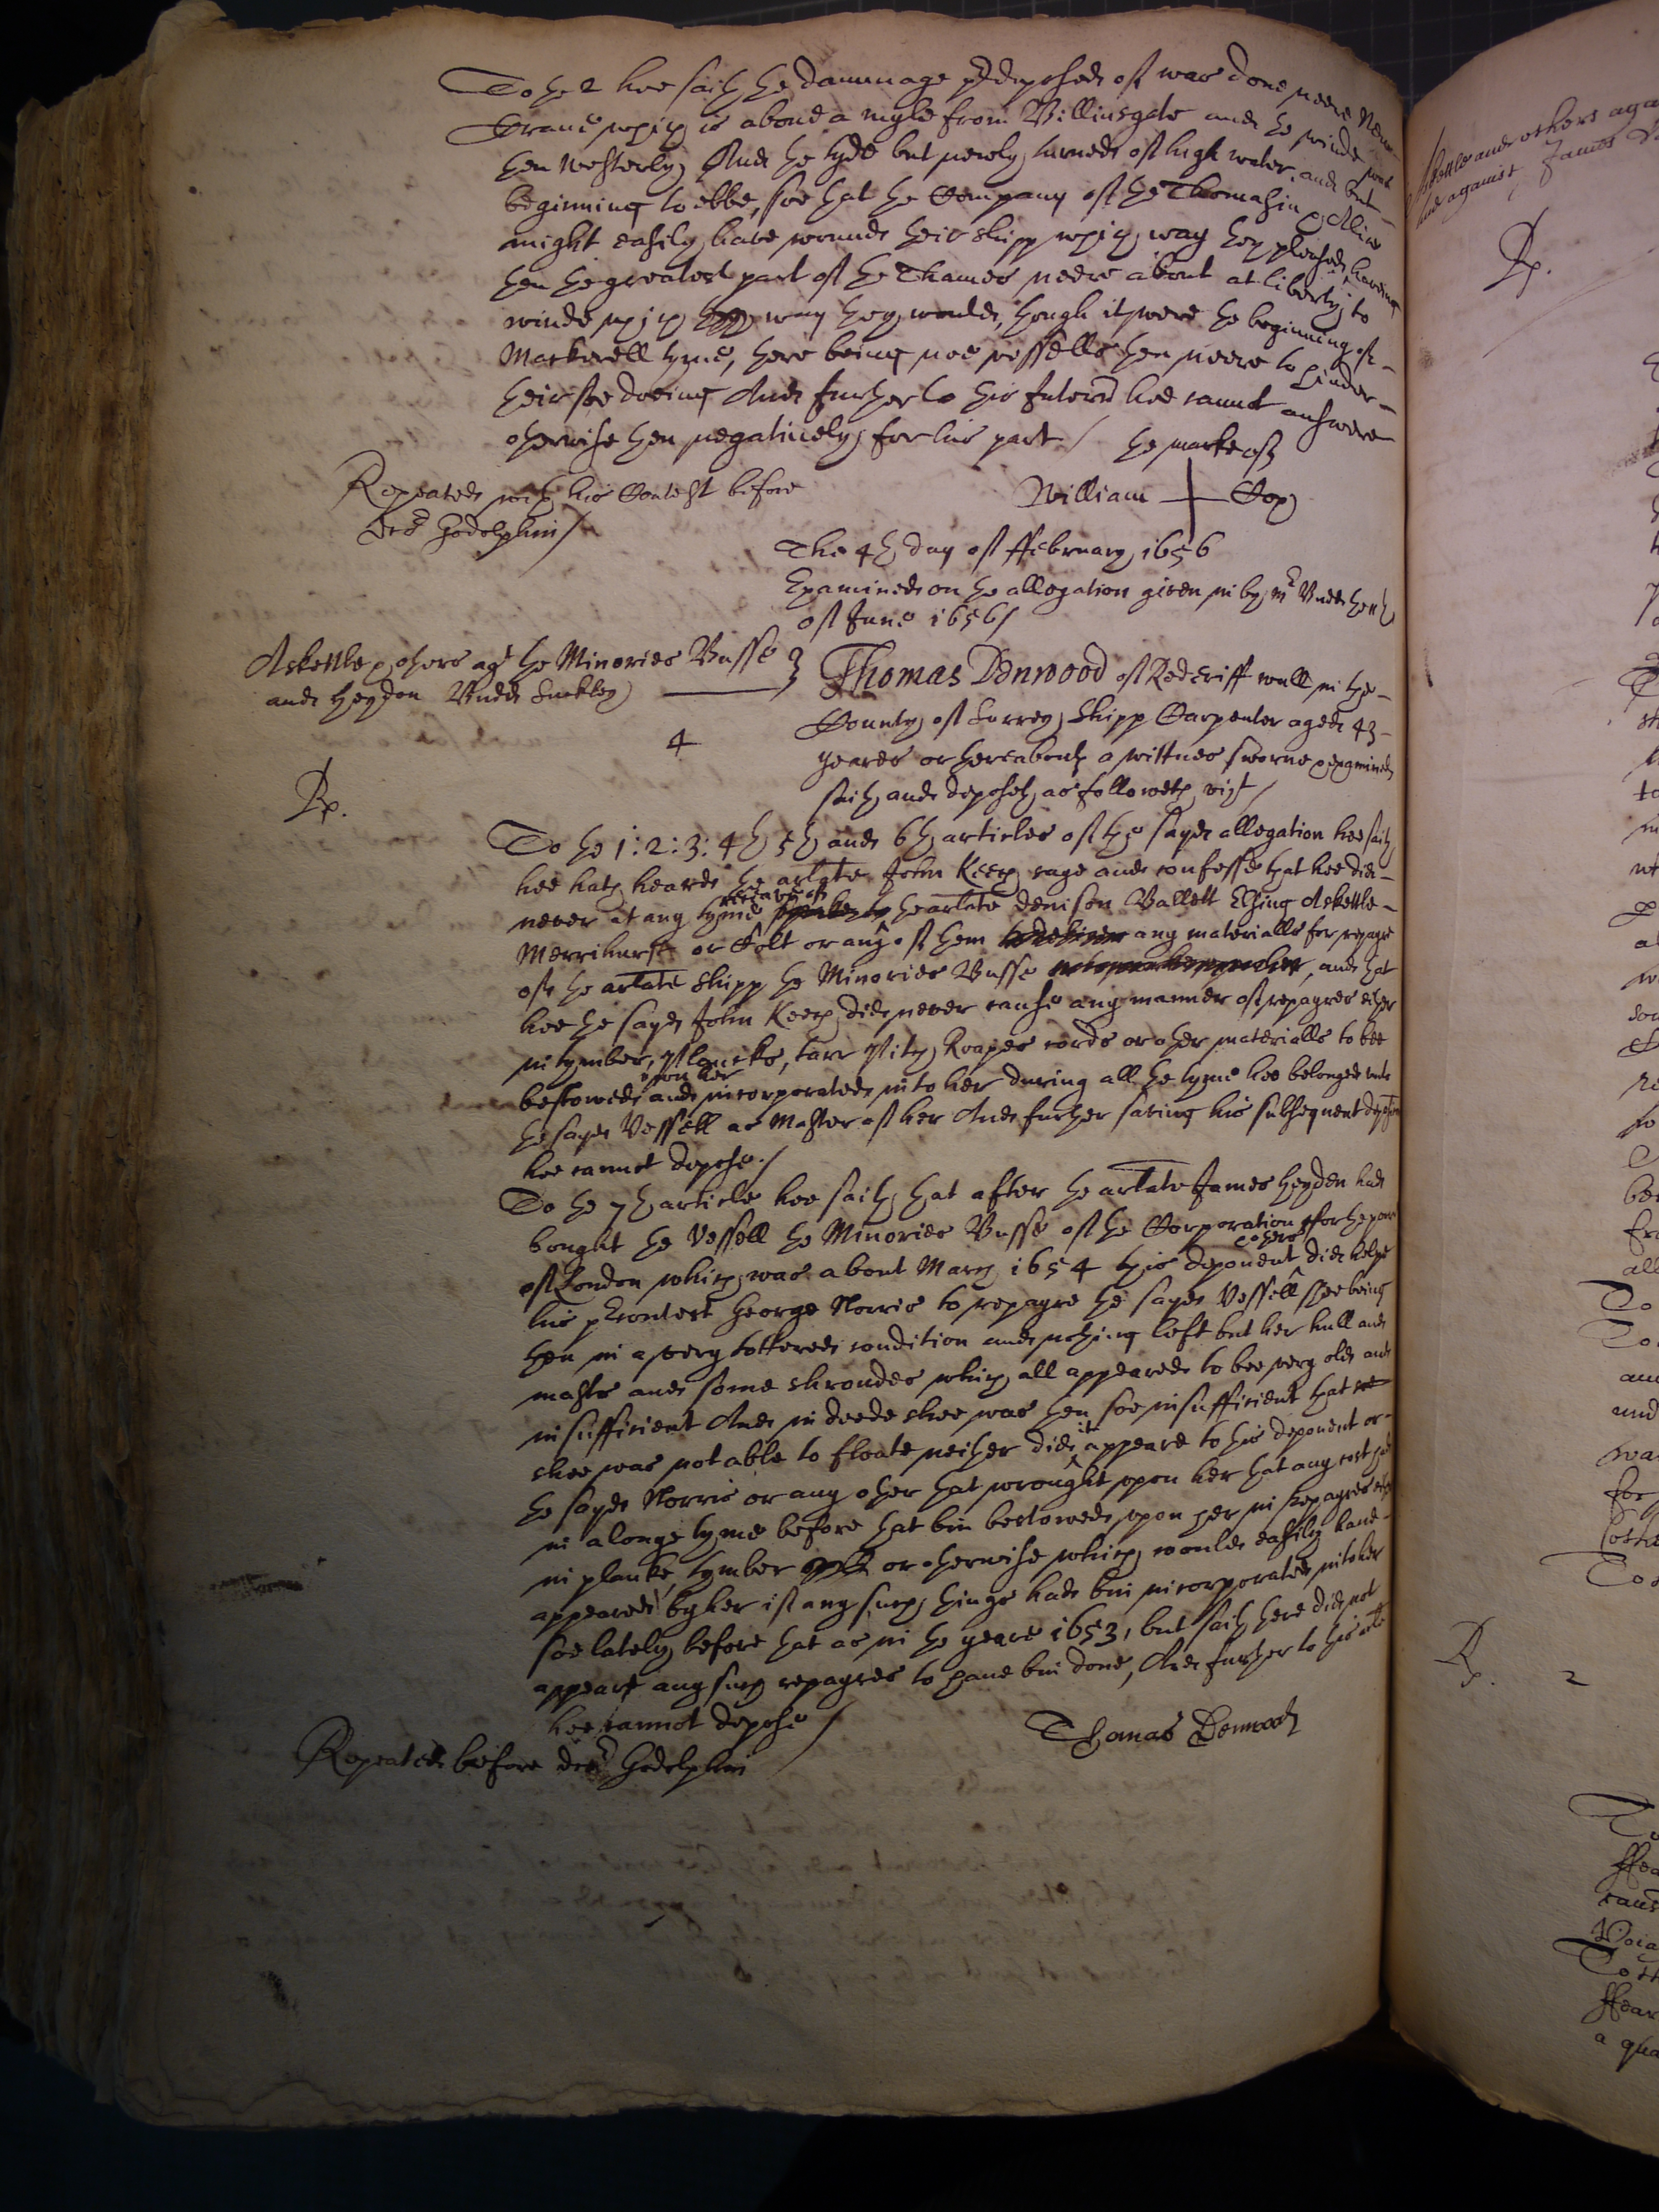 To the 2 hee saith the dammage predeposed of was done neere New
Crane which is about a myle from Billinsgate and the winde was
then Westerly And the tyde but newly turned of high water, and but
beginning to ebbe, soe that the Company of the Thomasin & Alice
might easily have wounde their shipp which way they pleased, having
then the greatest part of the Thames neere about at liberty, to
winde which way they would, though it were the beginning of
Mackerell tyme, there being noe vessells then neere to hinder
their soe doeing And further to this Interrie hee cannot answere
otherwise then negatively for his part / the marke of
Repeated with his Contest before
docr Godolphin /
William + Cox
The 4th day of ffebruary 1656
Examined on the allegation given in by Mr Budd the
of June 1656 /
Askettle & others agt the Minories Busse
and Heydon Budd Suckley
4
Rp.
Thomas Denwood of Rederiff wall in the
County of Surrey Shipp Carpenter aged 43
yeares or thereabouts a wittnes sworne & examined
saith and deposeth as followeth vizt /
To the 1: 2: 3: 4th 5th and 6th articles of the sayd allegation hee saith
hee hath heard the arlate John Keech saye and confesse that hee did
never at any tyme receave of the arlate Denison Ballett Thing Askettle
Merrihurst or Colt or any of them any materialls for repayre
of the arlate shipp the Minories Busse, and that
hee the sayd John Keech did never cause any manner of repayres either
in tymber, Plancks, tarr Pitch Roapes cords or other materialls to bee
bestowed upon her and incorporated into her during all the tyme hee belonged unto
the sayd Vessell as Master of her And further saving his subsequent deposition
hee cannot depose. /
To the 7th article hee saith that after the arlate James Heyden had
bought the Vessell the Minories Busse of the Corporation for the poore
of London which was about March 1654 this deponent & others did helpe
his precontest George Norris to repayre the sayd Vessell shee being
then in a very tottered condition and nothing left but her hull and
masts and some shroudes which all appeared to bee very old and
insufficient And in deede shee was then soe insufficient that
shee was not able to floate neither did it appeare to this deponent or
the sayd Norris or any other that wrought upon her that any cost had
in a longe tyme before that bin bestowed upon her in repayres either
in planke, tymber or otherwise which would easily have
appeared by her if any such things had bin incorporated into her
soe lately before that as in the yeare 1653, but saith there did not
appeare any such repayres to have bin done, And further to this arlte
hee cannot depose /
Thomas Denwood
Repeated before docr Godolphin